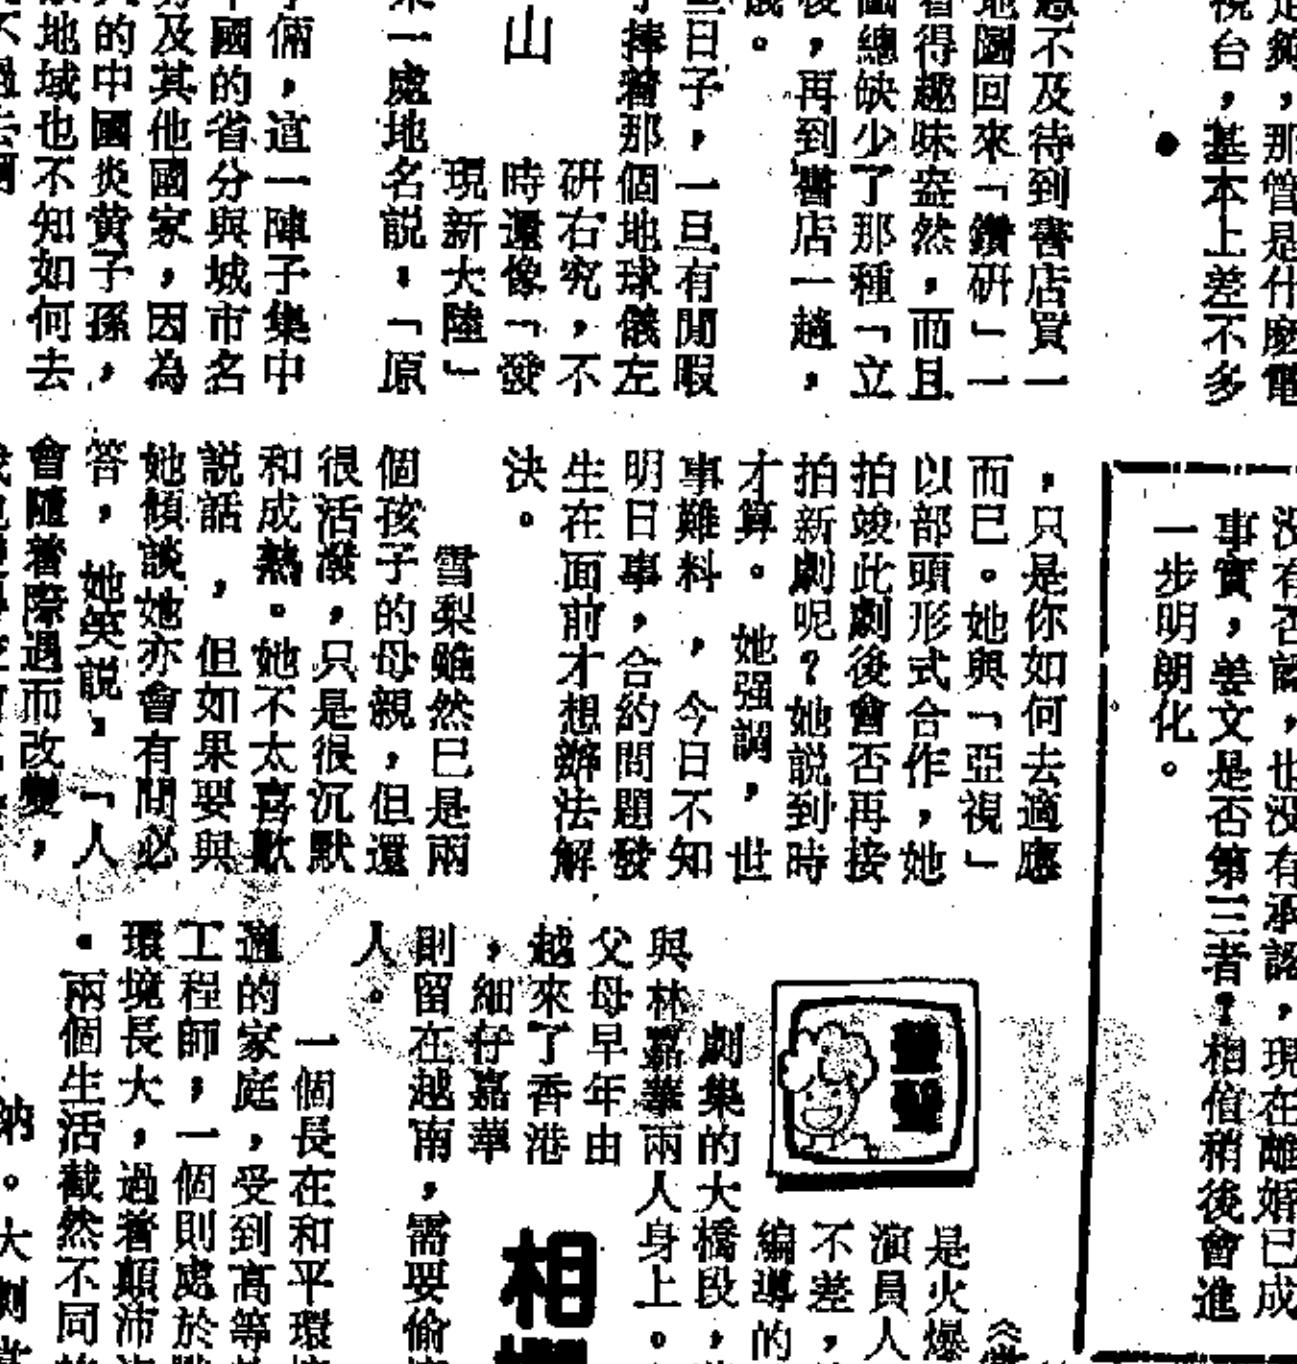 足夠，那管是什麽電
視台，基本上差不多
不及待到書店買一
地圖回來「鑽研」一
看得趣味盎然，而且
總缺少了那種「立
後，再到書店一趟，
日子，一旦有閒暇
捧着那個地球儀左
研右究，不
時還像「發
現新大陸」
一處地名説：「原
山
倆，這一陣子集中
國的省分與城市名
及其他國家，因為
的中國炎黄子孫，
地域也不知如何去
没有否認，也没有承認，現在離婚已成
事實，姜文是否第三者？相信稍後會進
一步明朗化。
，只是你如何去適應
而已。她與「亞視」
以部頭形式合作，她
拍竣此劇後會否再接
拍新劇呢？她説到時
才算。她强調，世
事難料，今日不知
明日事，合約問題發
生在面前才想辦法解
決。
雪梨雖然已是兩
個孩子的母親，但還
很活潑，只是很沉默
和成熟。她不太喜歡
説話，但如果要與
她傾談她亦會有問必
答，她笑説：「人
會隨着際遇而改變，
是火爆
演員人
不差，
編導的
劇集的大橋段，
與林嘉華兩人身上。
父母早年由
越來了香港
，細仔嘉華
則留在越南，需要偷
人。
相
一個長在和平環
適的家庭，受到高等
工程師；一個則處於
環境長大，過着顛沛
。兩個生活截然不同